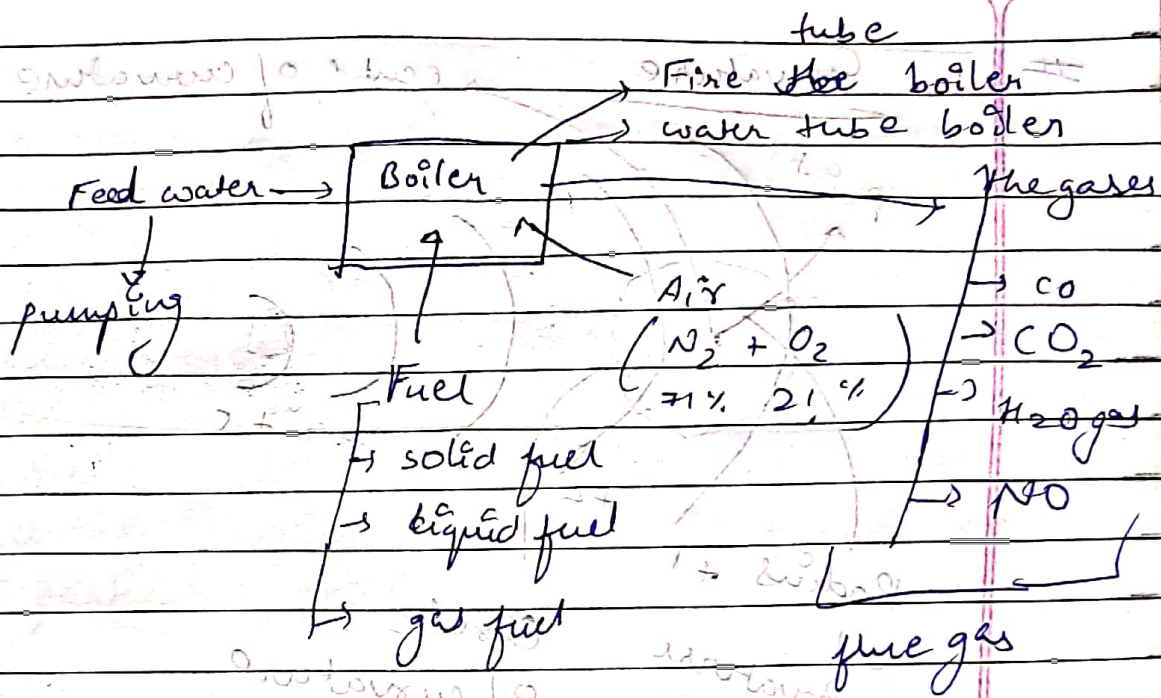 tube
Fire boiler
water tube boiler
Feed water → Boiler
The gases
pumping
Air
(N2 + O2)
71% 21%
→ CO
→ CO2
→ H2O gas
→ NO
Fuel
→ solid fuel
→ liquid fuel
→ gas fuel
flue gas